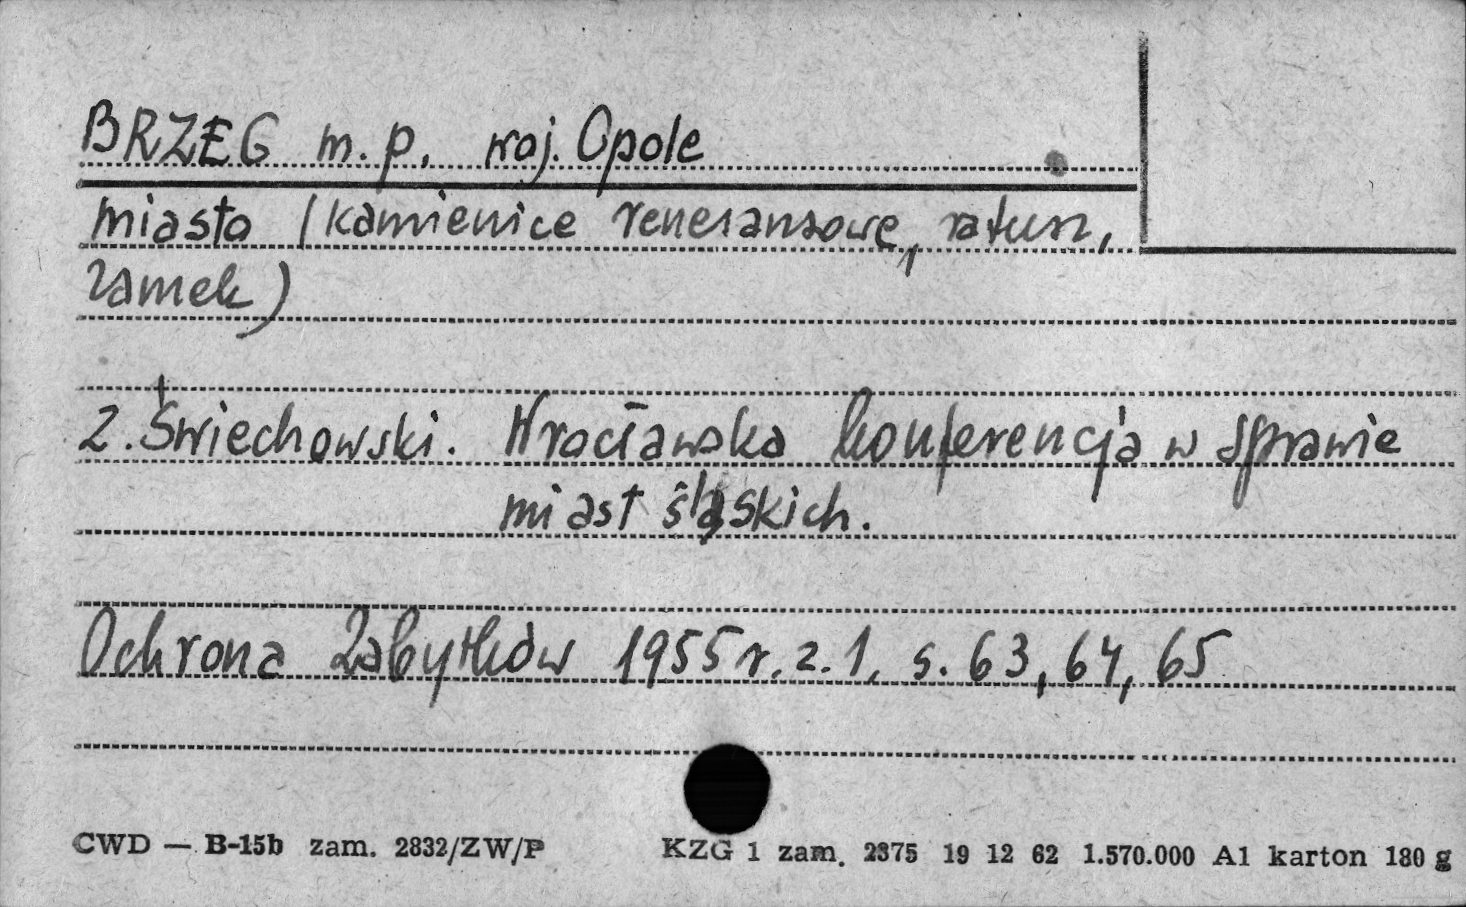 BRZEG m. p. woj. Opole
miasto (kamienice renesansowe, ratusz,
zamek)
Z. Świechowski. Wrocławska konferencja w sprawie
miast śląskich.
Ochrona Zabytków 1955 r. z. 1, s. 63, 64, 65
CWD — B-15b zam. 2832/ZW/P KZG 1 zam. 2375 19 12 62 1.570.000 A1 karton 180 g